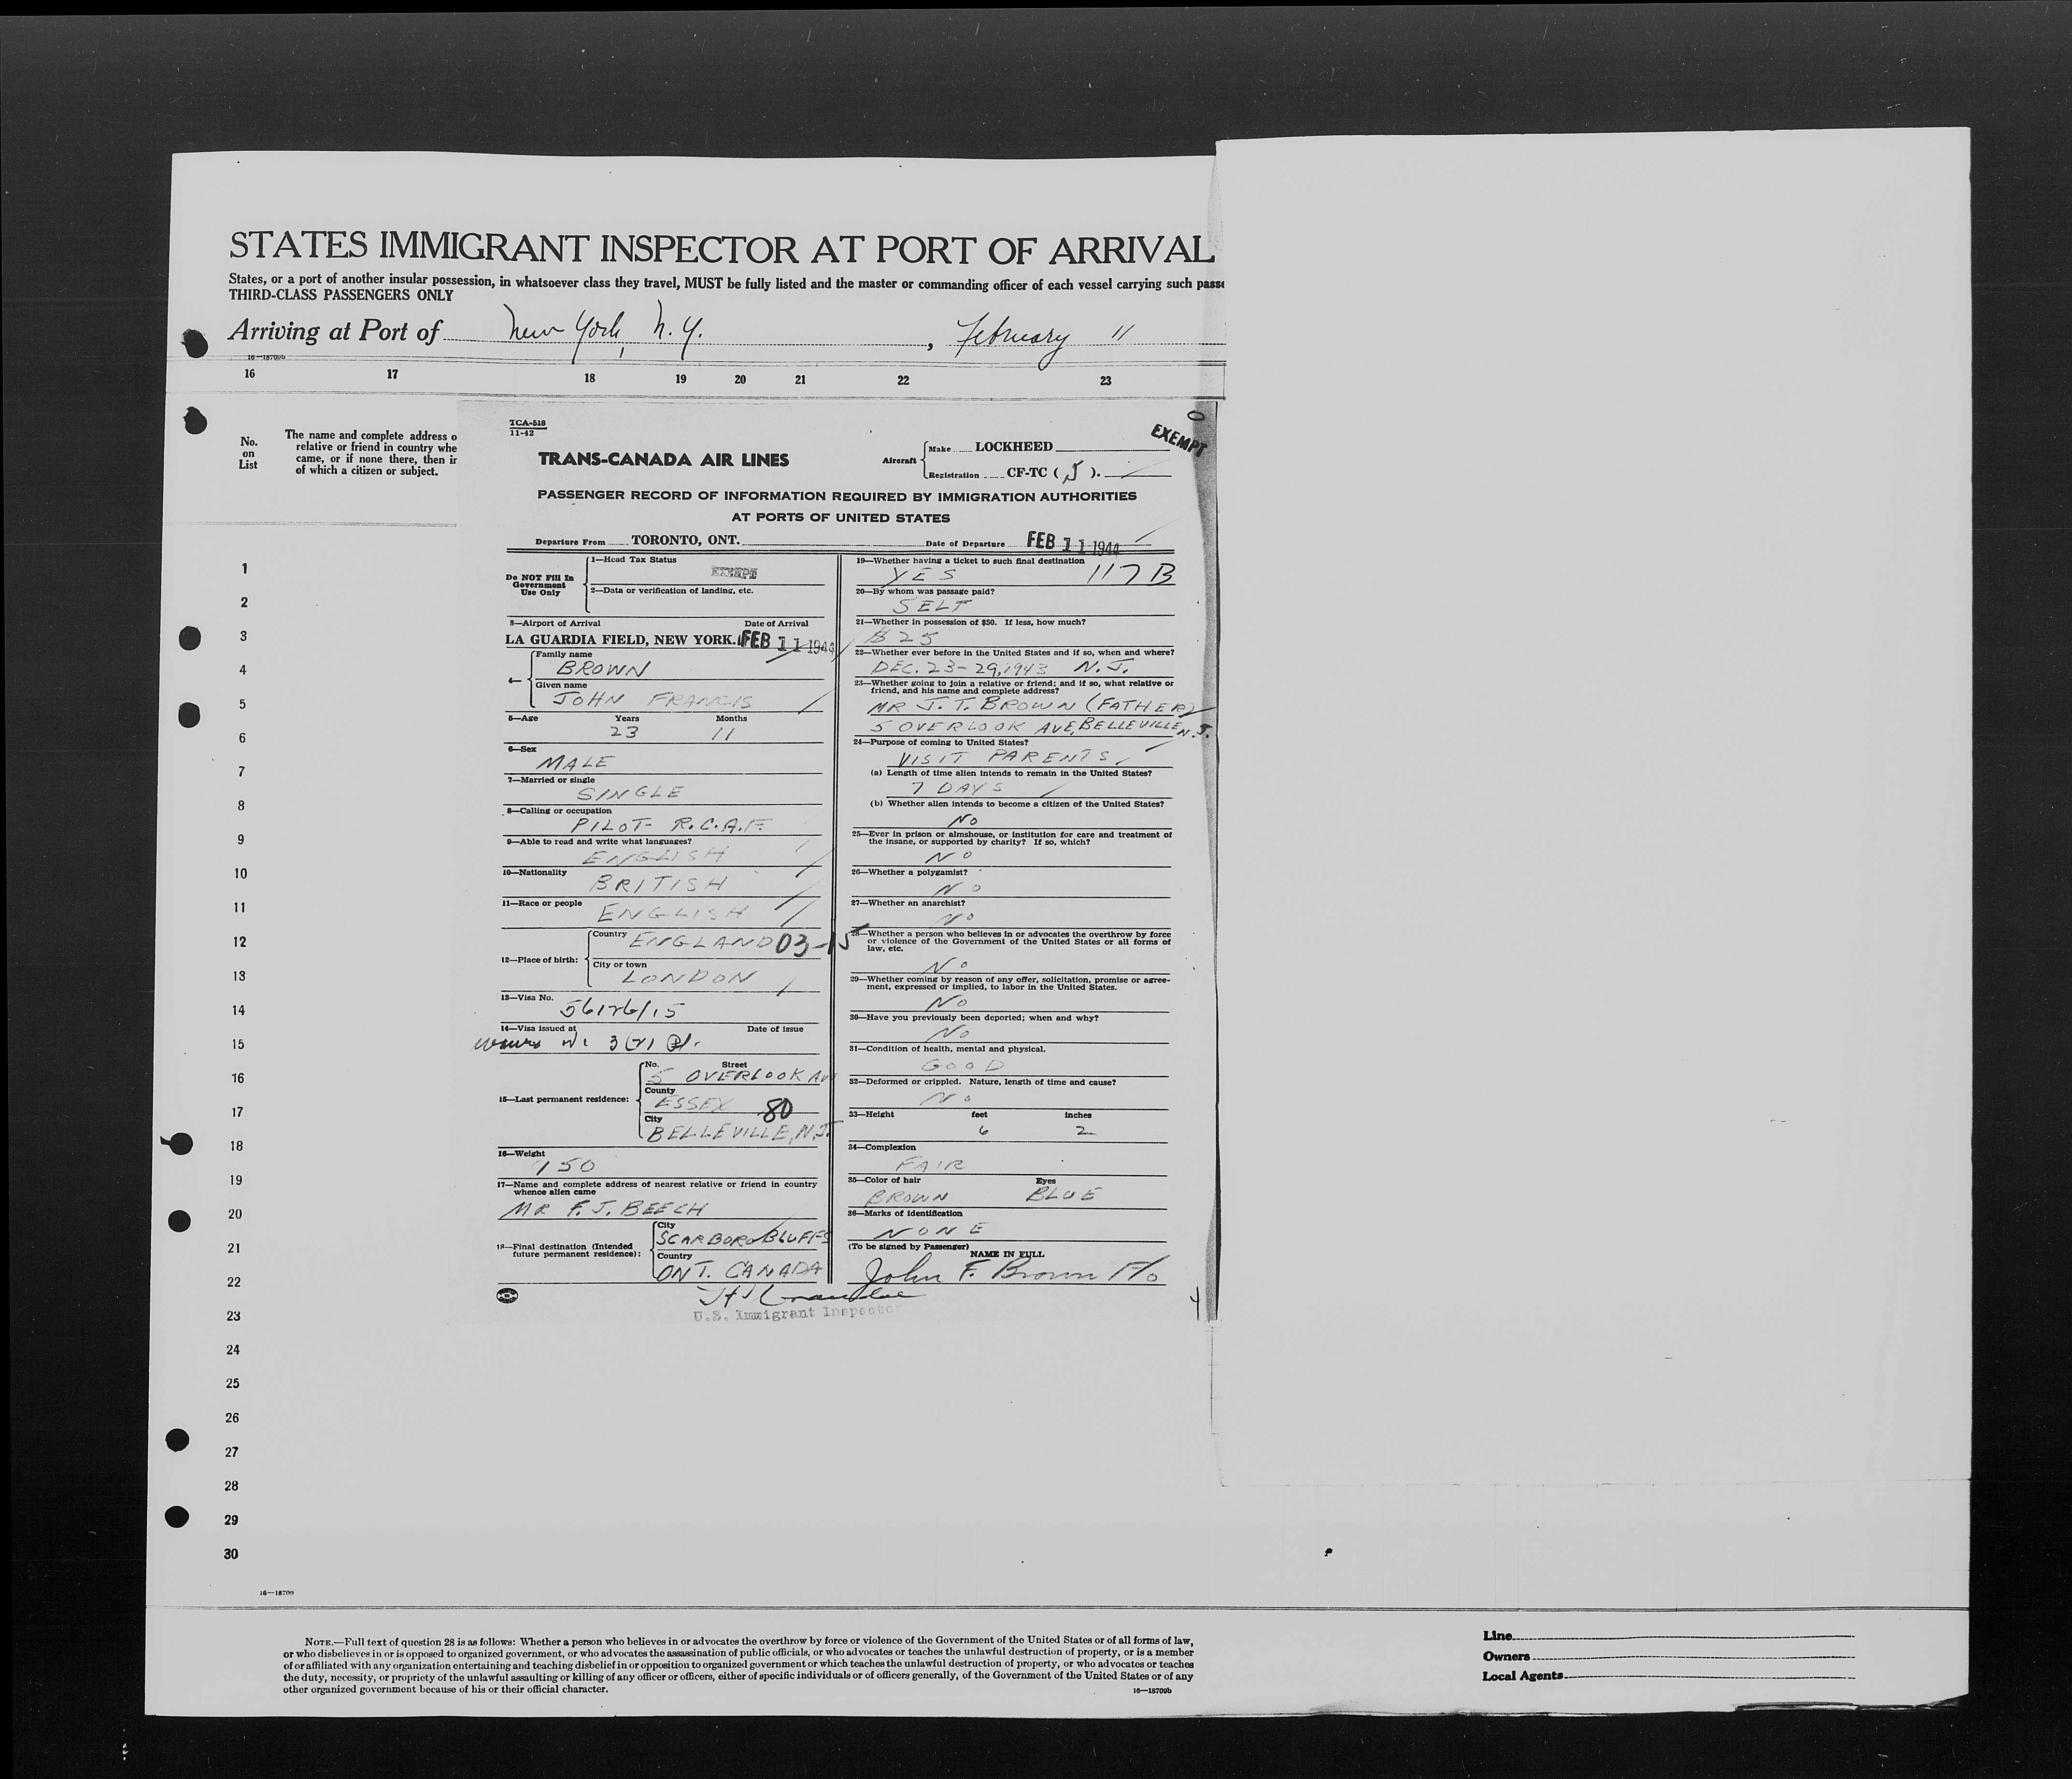 STATES IMMIGRANT INSPECTOR AT PORT OF ARRIVAL
States, or a port of another insular possession, in whatsoever class they travel, MUST be fully listed and the master or commanding officer of each vessel carrying such passe
THIRD-CLASS PASSENGERS ONLY
Arriving at Port of New York, N. Y. , February 11
16—18709b
16 17 18 19 20 21 22 23
No. on List
The name and complete address o
relative or friend in country whe
came, or if none there, then in
of which a citizen or subject.
TCA-518
11-42
EXEMPT
TRANS-CANADA AIR LINES
Aircraft Make LOCKHEED
Registration CF-TC ( J ).
PASSENGER RECORD OF INFORMATION REQUIRED BY IMMIGRATION AUTHORITIES
AT PORTS OF UNITED STATES
Departure From TORONTO, ONT. Date of Departure FEB 11 1944
Do NOT Fill In Government Use Only
1—Head Tax Status
EXEMPT
2—Data or verification of landing, etc.
3—Airport of Arrival Date of Arrival
LA GUARDIA FIELD, NEW YORK. FEB 11 1944
4— Family name
BROWN
Given name
JOHN FRANCIS
5—Age Years Months
23 11
6—Sex
MALE
7—Married or single
SINGLE
8—Calling or occupation
PILOT- R.C.A.F.
9—Able to read and write what languages?
ENGLISH
10—Nationality
BRITISH
11—Race or people
ENGLISH
12—Place of birth: Country
ENGLAND 03-15
City or town
LONDON
13—Visa No.
56126/15
14—Visa issued at Date of issue
15—Last permanent residence: No. Street
5 OVERLOOK AVE
County
ESSEX 80
City
BELLEVILLE, N.J.
16—Weight
150
17—Name and complete address of nearest relative or friend in country
whence alien came
MR F. J. BEECH
18—Final destination (Intended
future permanent residence): City
SCARBORO BLUFFS
Country
ONT. CANADA
19—Whether having a ticket to such final destination
YES 117 B
20—By whom was passage paid?
SELF
21—Whether in possession of $50. If less, how much?
$25
22—Whether ever before in the United States and if so, when and where?
DEC. 23-29, 1943 N.J.
23—Whether going to join a relative or friend; and if so, what relative or
friend, and his name and complete address?
MR J. T. BROWN (FATHER)
5 OVERLOOK AVE, BELLEVILLE N.J.
24—Purpose of coming to United States?
VISIT PARENTS
(a) Length of time alien intends to remain in the United States?
7 DAYS
(b) Whether alien intends to become a citizen of the United States?
NO
25—Ever in prison or almshouse, or institution for care and treatment of
the insane, or supported by charity? If so, which?
NO
26—Whether a polygamist?
NO
27—Whether an anarchist?
NO
28—Whether a person who believes in or advocates the overthrow by force
or violence of the Government of the United States or all forms of
law, etc.
NO
29—Whether coming by reason of any offer, solicitation, promise or agree-
ment, expressed or implied, to labor in the United States.
NO
30—Have you previously been deported; when and why?
NO
31—Condition of health, mental and physical.
GOOD
32—Deformed or crippled. Nature, length of time and cause?
NO
33—Height feet inches
6 2
34—Complexion
FAIR
35—Color of hair Eyes
BROWN BLUE
36—Marks of identification
NONE
(To be signed by Passenger) NAME IN FULL
John F. Brown F/o
U.S. Immigrant Inspector
1
2
3
4
5
6
7
8
9
10
11
12
13
14
15
16
17
18
19
20
21
22
23
24
25
26
27
28
29
30
16—18709
NOTE.—Full text of question 28 is as follows: Whether a person who believes in or advocates the overthrow by force or violence of the Government of the United States or of all forms of law,
or who disbelieves in or is opposed to organized government, or who advocates the assassination of public officials, or who advocates or teaches the unlawful destruction of property, or is a member
of or affiliated with any organization entertaining and teaching disbelief in or opposition to organized government or which teaches the unlawful destruction of property, or who advocates or teaches
the duty, necessity, or propriety of the unlawful assaulting or killing of any officer or officers, either of specific individuals or of officers generally, of the Government of the United States or of any
other organized government because of his or their official character.
16—18709b
Line
Owners
Local Agents